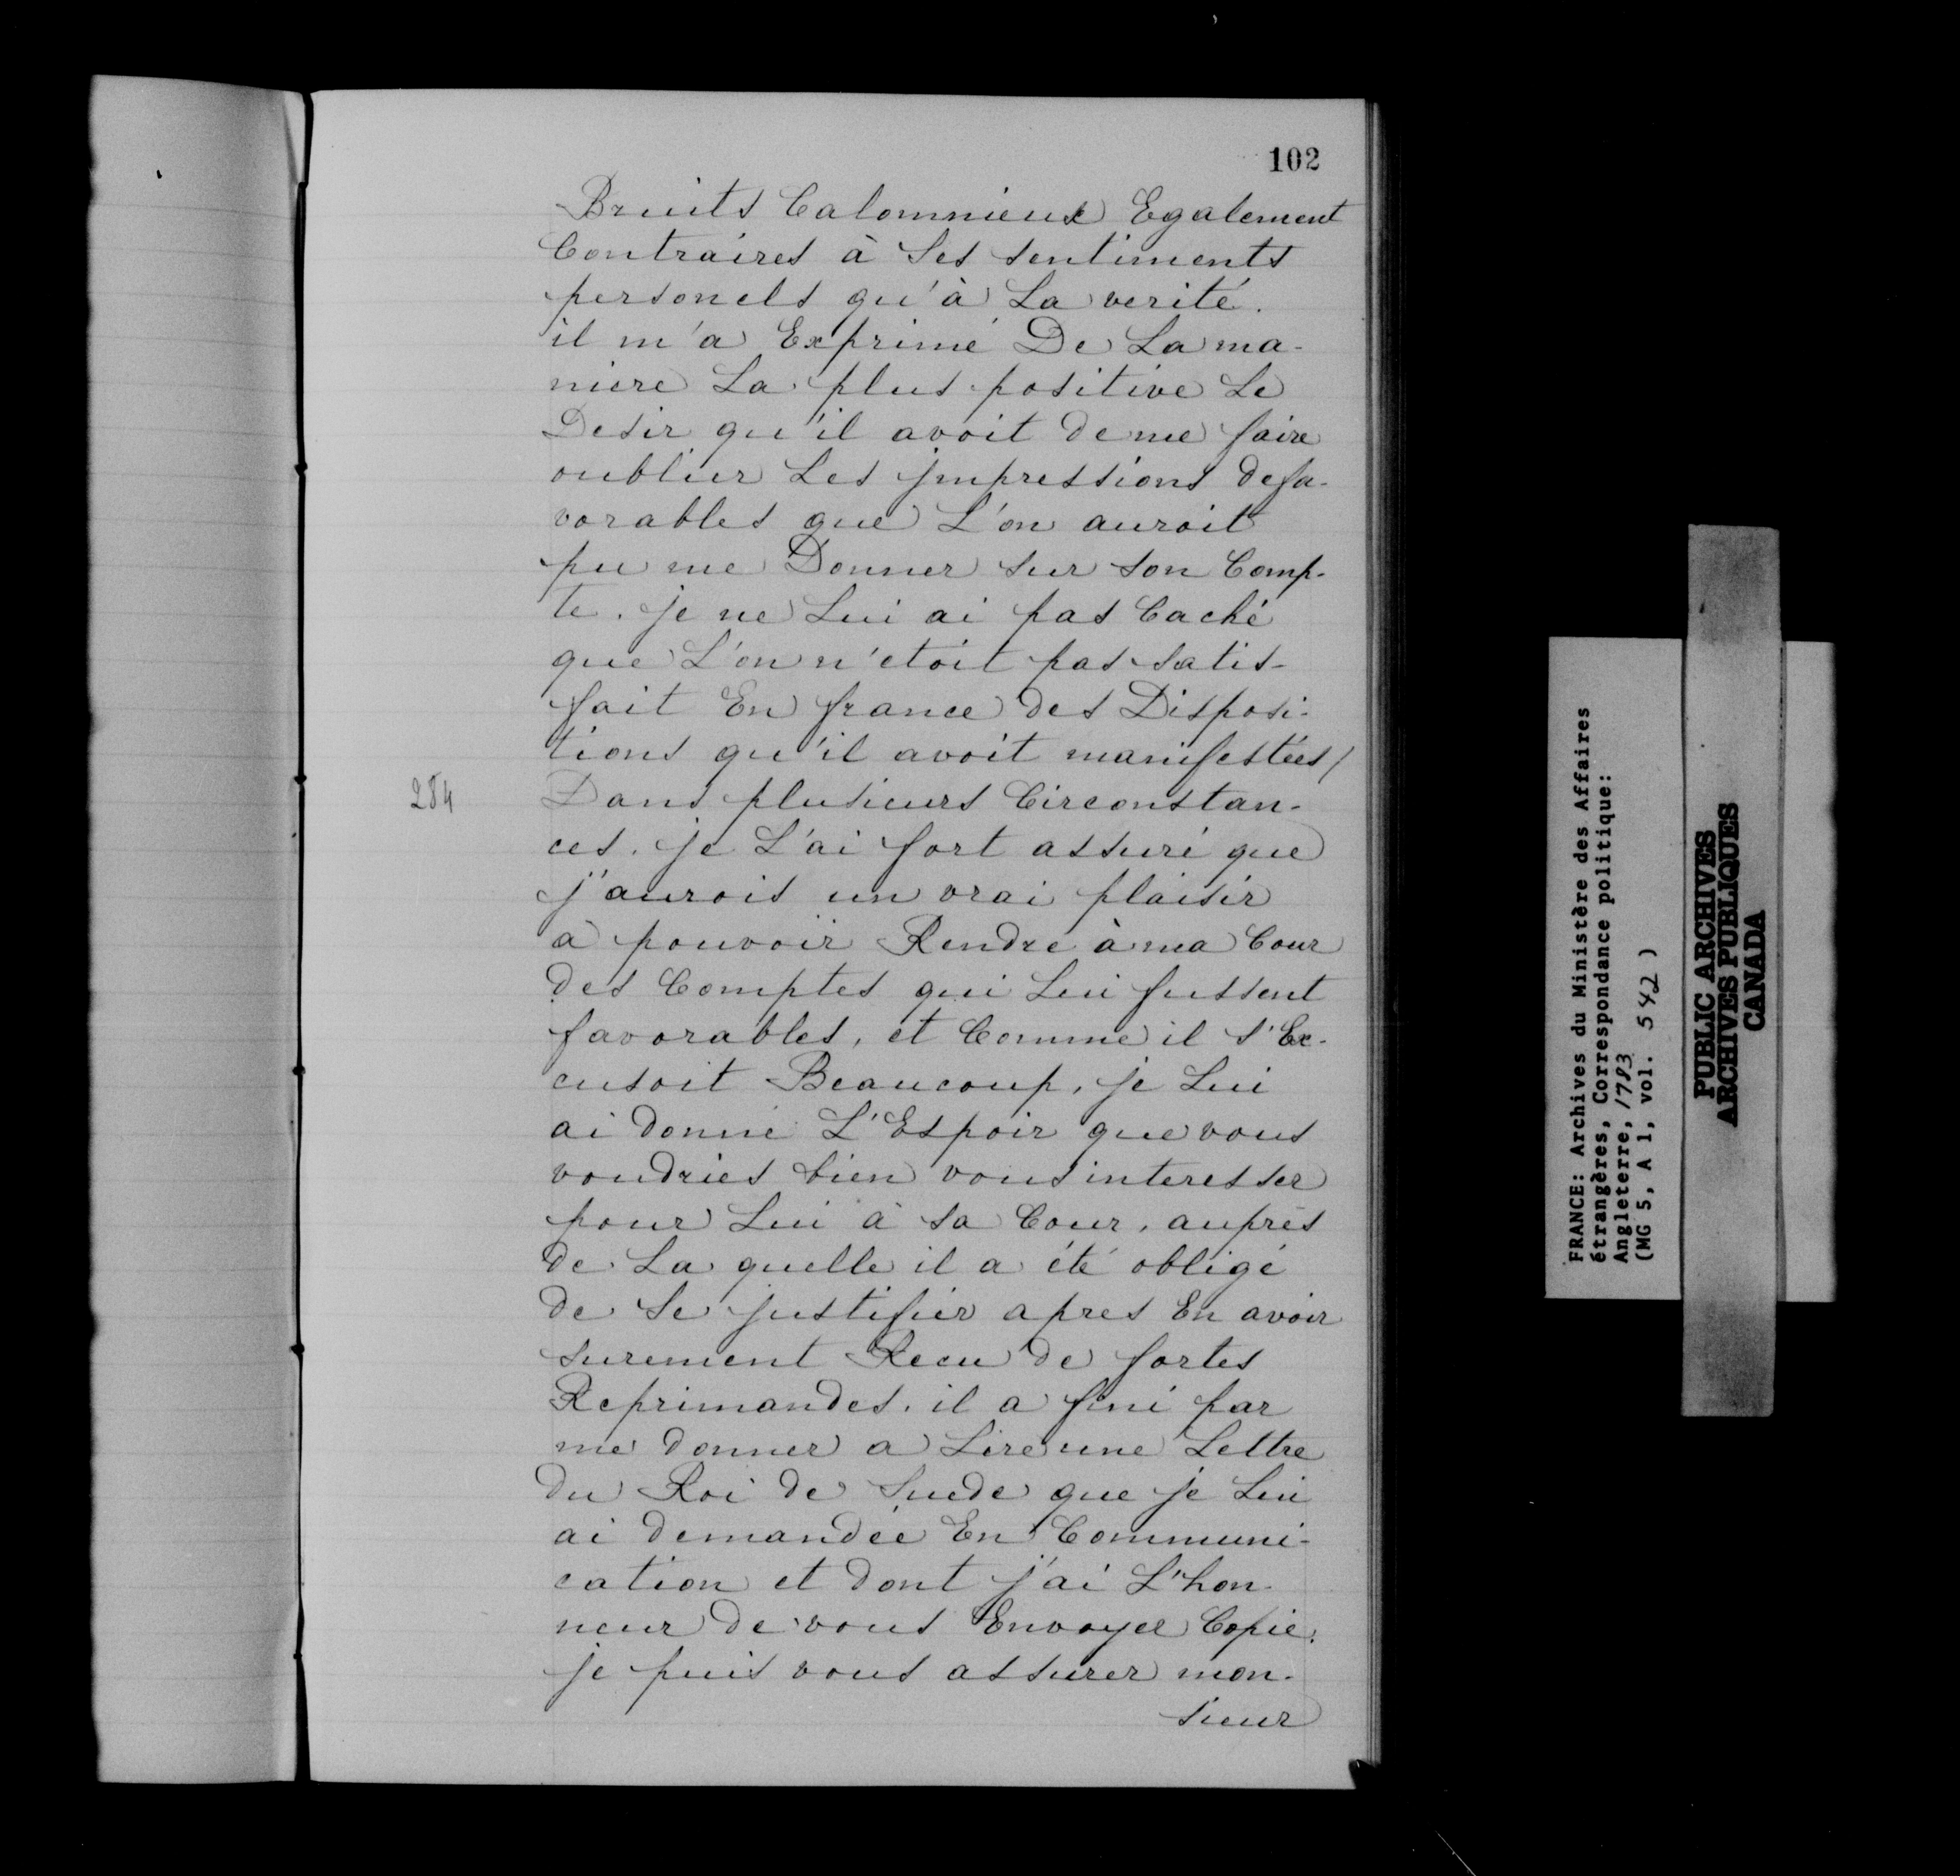 102
Bruits Calomnieux Egalement
Contraires à Ses sentiments
personels qu'à La verité.
il m'a Exprimé De La ma-
niere La plus positive Le
Desir qu'il avoit de me faire
oublier Les jmpressions defa-
vorables que L'on auroit
pu me Donner sur son Comp-
te. je ne Lui ai pas Caché
que L'on n'etoit pas satis-
fait En france des Disposi-
tions qu'il avoit manifestées/
284
Dans plusieurs Circonstan-
ces. je L'ai fort assuré que
j'aurois un vrai plaisir
a pouvoir Rendre à ma Cour
des Comptes qui Lui fussent
favorables, et Comme il s'Ex-
cusoit Beaucoup, je Lui
ai donné L'Espoir que vous
voudries bien vous interesser
pour Lui à sa Cour, auprès
de La quelle il a été obligé
de Se justifier apres En avoir
surement Recu de fortes
Reprimandes. il a fini par
me donner a Lire une Lettre
du Roi de Suede que je Lui
ai demandée En Communi-
cation et dont j'ai L'hon-
neur de vous Envoyer Copie.
je puis vous assurer mon-
sieur
FRANCE: Archives du Ministère des Affaires
étrangères, Correspondance politique:
Angleterre, 1783
(MG 5, A 1, vol. 542 )
PUBLIC ARCHIVES
ARCHIVES PUBLIQUES
CANADA